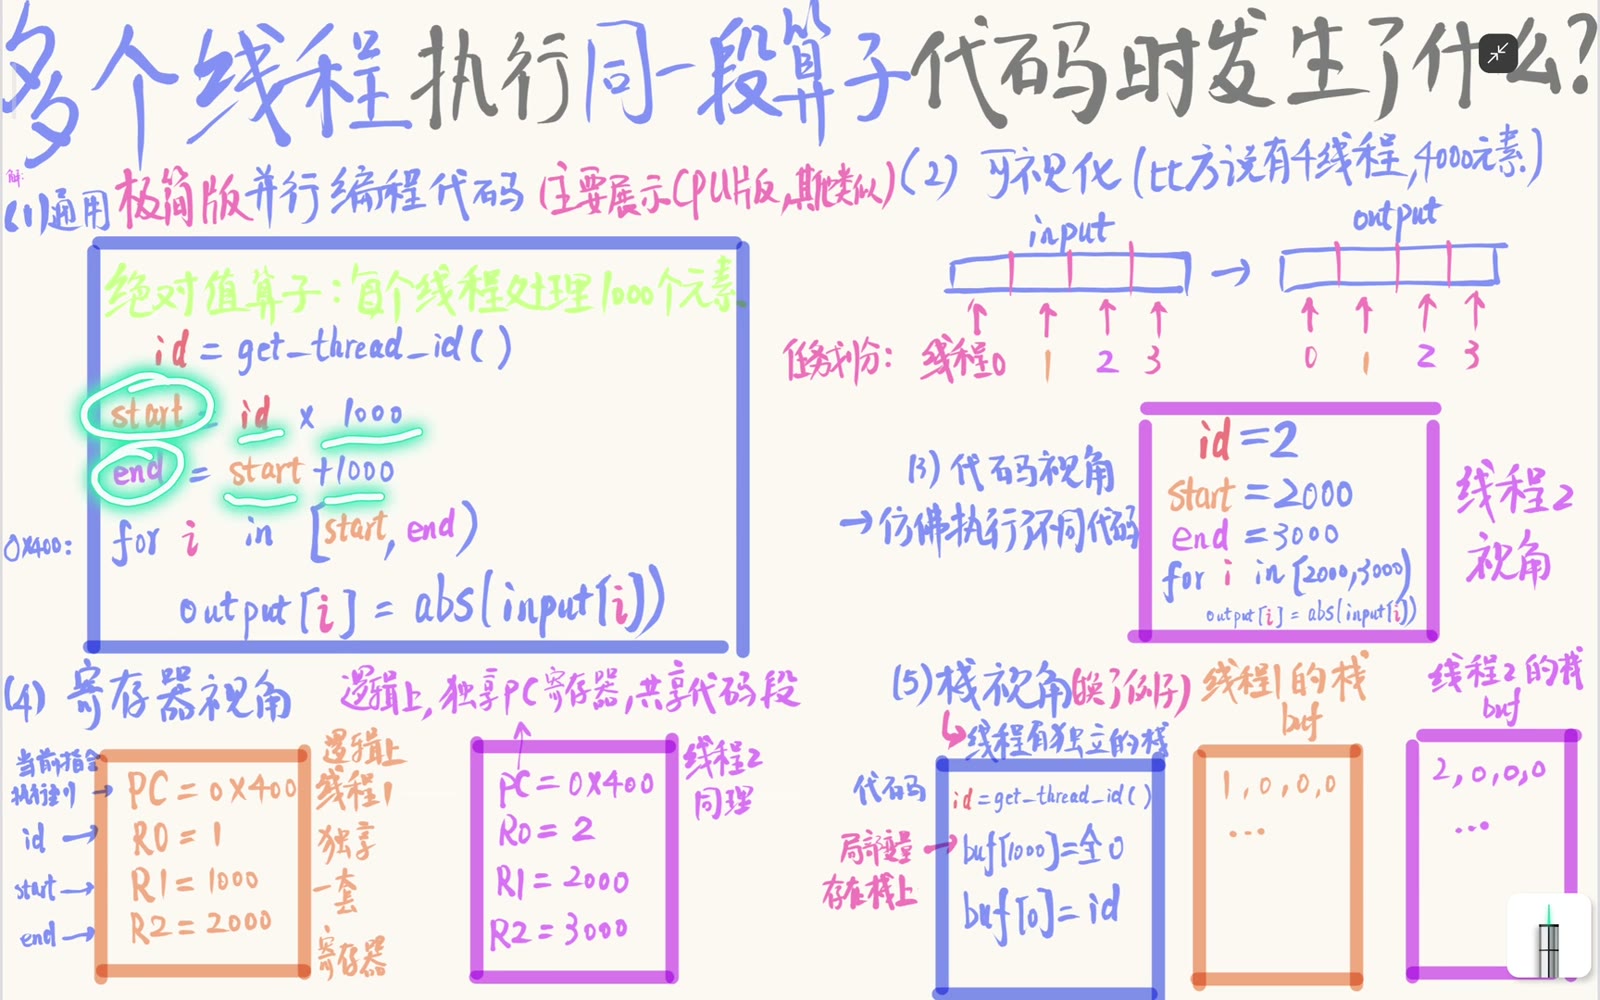 多个线程执行同一段算子代码时发生了什么?
解:
(1)通用极简版并行编程代码(主要展示CPU片反,其他类似)
绝对值算子:每个线程处理1000个元素
id = get_thread_id()
start = id x 1000
end = start +1000
0x400:
for i in [start, end)
output[i] = abs(input[i])
(2) 可视化(比方说有4线程,4000元素)
input
output
→
任务划分: 线程0 1 2 3
0 1 2 3
(3)代码视角
→仿佛执行了不同代码
id=2
start=2000
end=3000
for i in [2000,3000)
output[i] = abs(input[i])
线程2
视角
(4) 寄存器视角
逻辑上,独享PC寄存器,共享代码段
当前指令
执行到 →
id →
start →
end →
PC=0x400
R0=1
R1=1000
R2=2000
逻辑上
线程1
独享
一套
寄存器
PC=0x400
R0=2
R1=2000
R2=3000
线程2
同理
(5)栈视角(换了例子)
线程有独立的栈
代码
局部变量 →
存在栈上
id=get_thread_id()
buf[1000]=全0
buf[0]=id
线程1的栈
buf
1,0,0,0
...
线程2的栈
buf
2,0,0,0
...